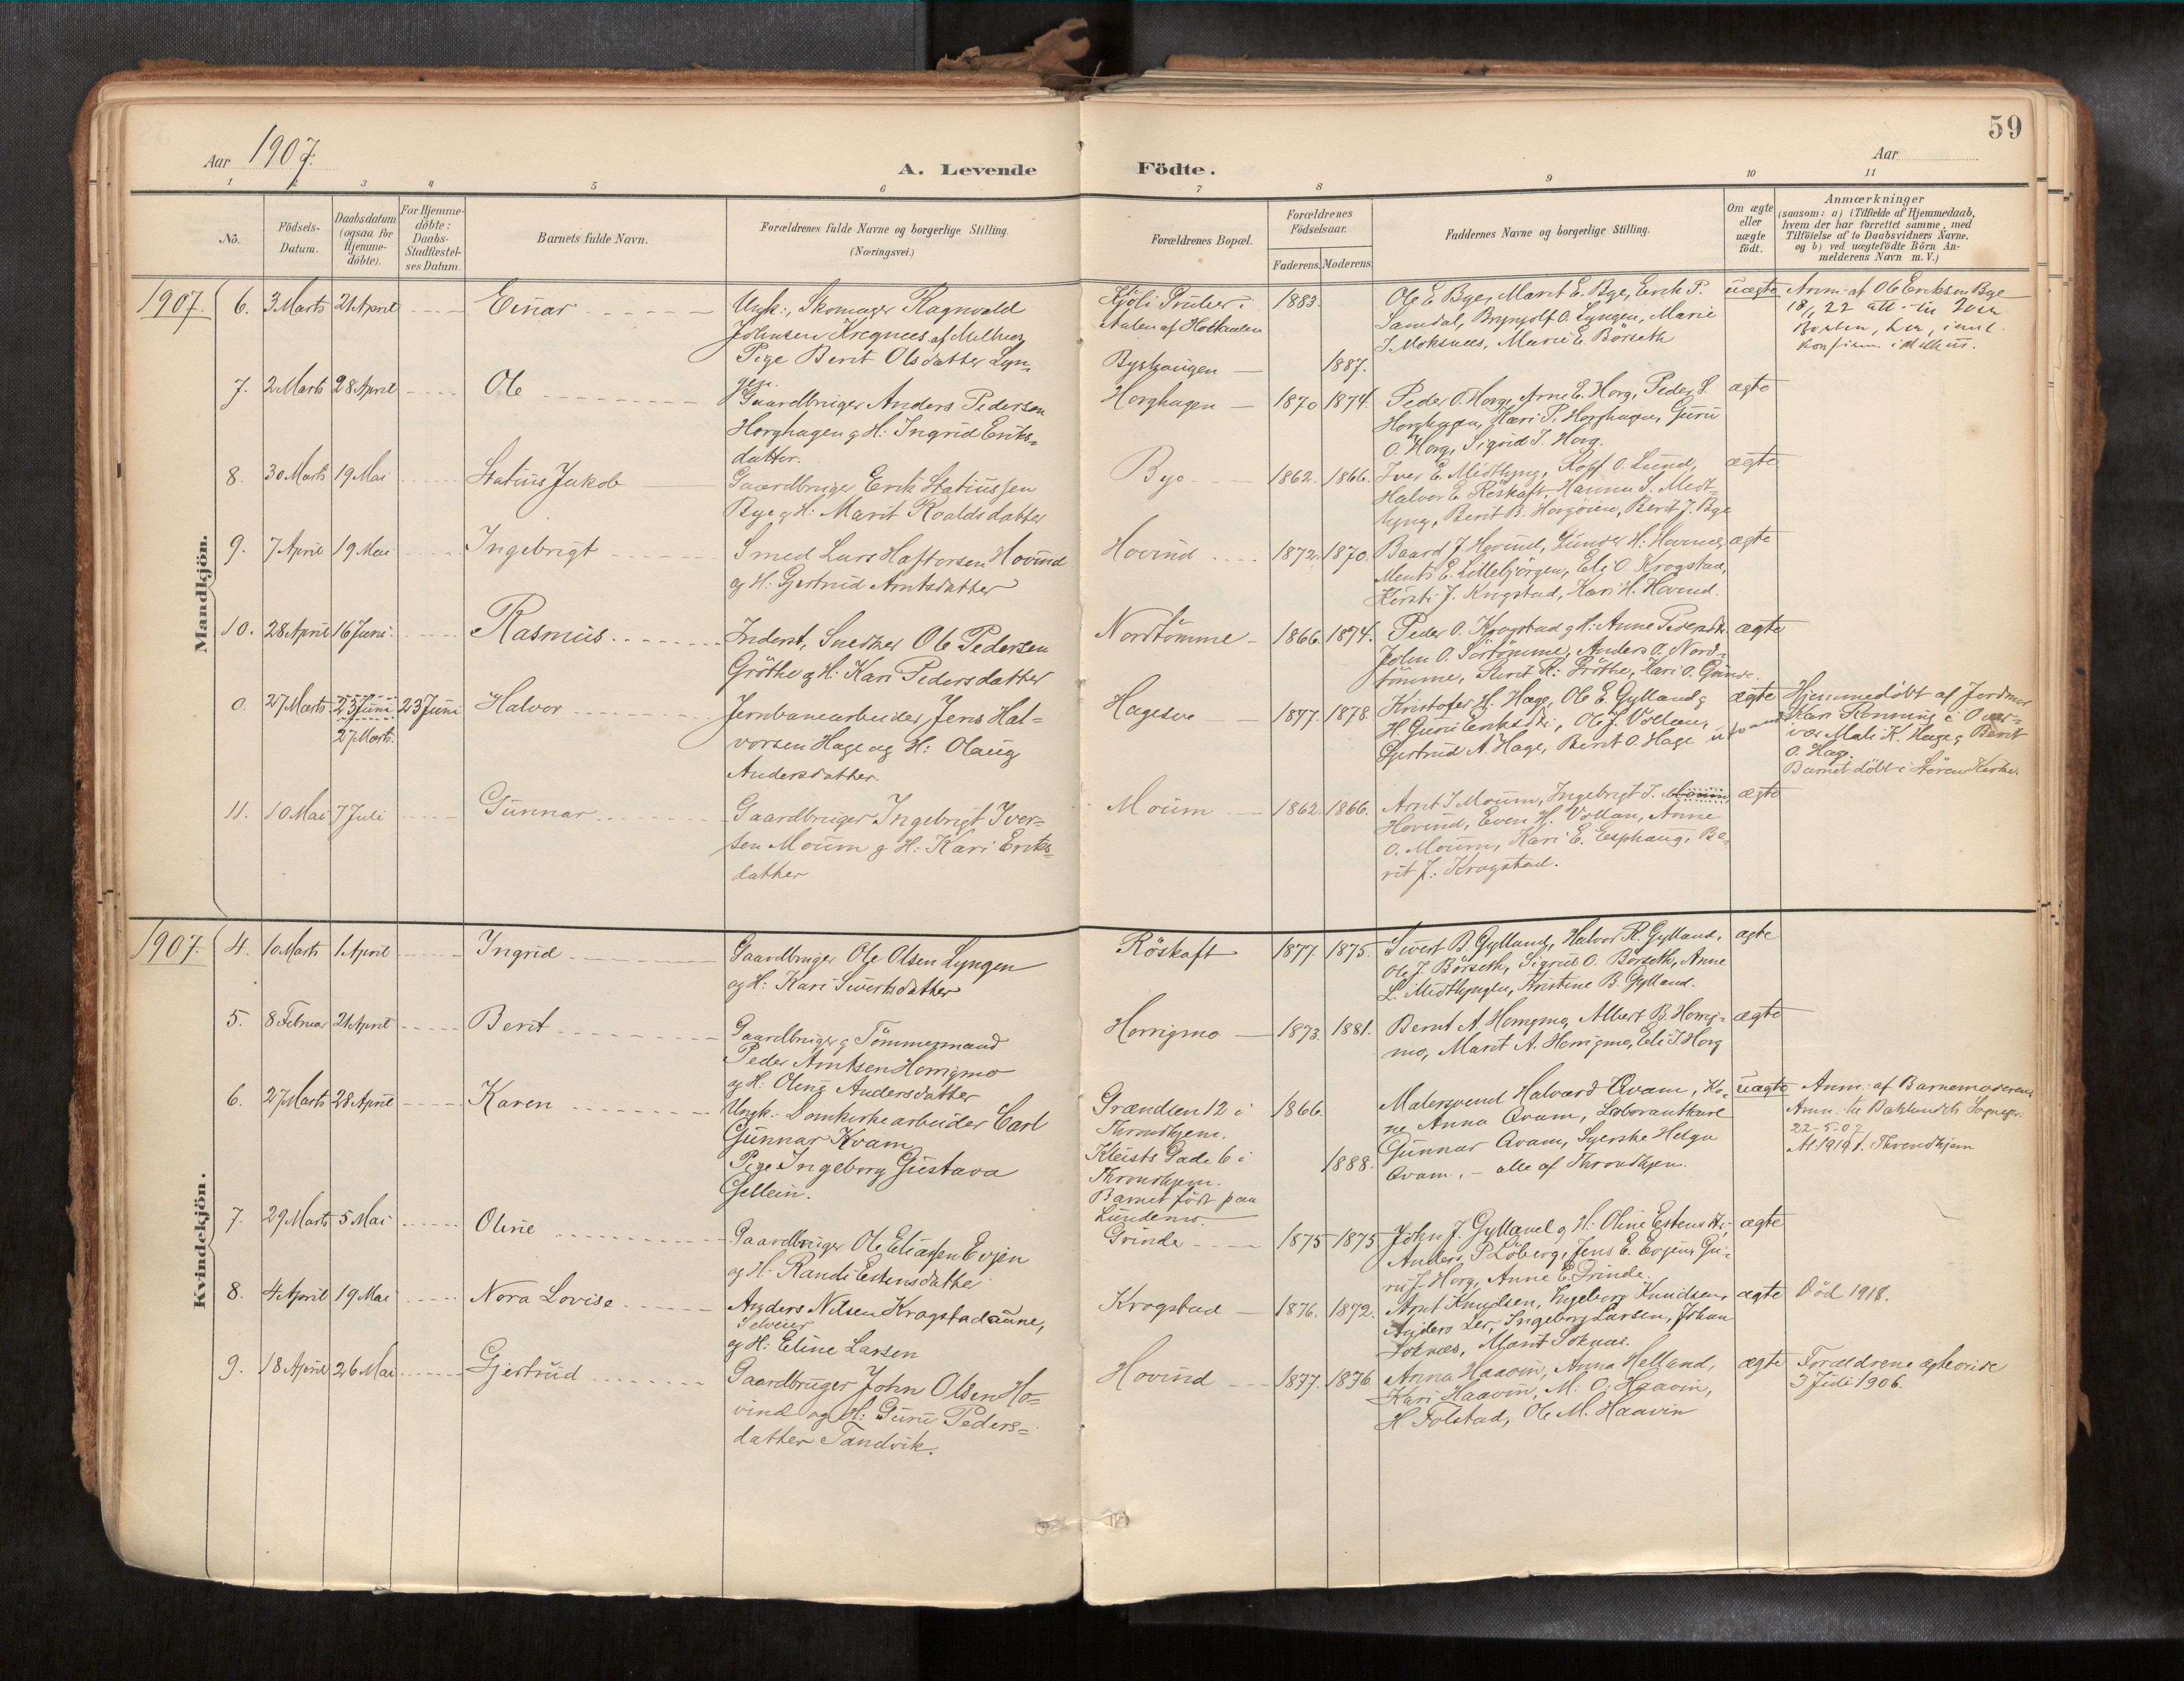 59
Aar 1907.
A. Levende Födte.
Aar
1 2 3 4 5 6 7 8 9 10 11
No.
Födsels-
Datum.
Daabsdatum
(ogsaa for
Hjemme-
döbte).
For Hjemme-
döbte:
Daabs-
Stadfæstel-
ses Datum.
Barnets fulde Navn.
Forældrenes fulde Navne og borgerlige Stilling.
(Næringsvei.)
Forældrenes Bopæl.
Forældrenes
Födselsaar.
Faderens. Moderens.
Faddernes Navne og borgerlige Stilling.
Om ægte
eller
uægte
födt.
Anmærkninger
(saasom: a) i Tilfælde af Hjemmedaab,
hvem der har forrettet samme, med
Tilföielse af to Daabsvidners Navne.
og b) ved uægtefödte Börn An-
melderens Navn m. V.)
Mandkjön.
1907. 6. 3 Marts 21 April Einar
Ungk:, Skomager Ragnvald
Johnsen af Melhus
Pige Berit Olsdatter Lyn-
gen.
Kjöli Gruber i
Aalen af Holtaalen
Byshaugen
1883.
1887.
Ole E. Bye, Marit E. Bye, Erik P.
Samdal, Brynjolf O. Lyngen, Marie
J. Moksnes, Marie E. Börseth
uægte
Anm. af Ole Eriksen Bye
18/1 22 att. til
7. 2 Marts 28 April Ole
Gaardbruger Anders Pedersen
Horghagen og H: Ingrid Eriks-
datter.
Horghagen 1870 1874.
Peder O. Horg, Arne E. Horg, Peder S.
Horghagen, Kari P. Horghagen, Guru
O. Horg, Sigrid J. Horg.
ægte
8. 30 Marts 19 Mai Statius Jakob
Gaardbruger Erik Statiussen
Bye og H: Marit Roaldsdatter
Bye 1862. 1866.
Iver E. Midtlyng, Rolf O. Lund,
Halvor E. Röskaft, Hanna S. Midt-
lyng, Berit B. Horgöien, Berit J. Bye
ægte
9. 7 April 19 Mai Ingebrigt
Smed Lars Haftorsen Hovind
og H: Gjertrud Arntsdatter
Hovind 1872. 1870.
Baard J. Hovind, Gunder H. Hovind,
Mentz E. Lillebjörgen, Eli O. Krogstad,
Kirsti J. Krogstad, Kari H. Hovind.
ægte
10. 28 April 16 Juni. Rasmus
Inderst, Snedker Ole Pedersen
Gröthe og H: Kari Pedersdatter
Nordtömme 1866. 1874.
Peder O. Krogstad og H: Anne Pedersdtr.
John O. Sörtömme, Anders O. Nord-
tömme, Berit R. Gröthe, Kari O. Grinde.
ægte
0. 27 Marts 23 Juni 23 Juni Halvor
27 Marts.
Jernbanearbeider Jens Hal-
vorsen Hage og H: Olaug
Andersdatter
Hagesve 1877. 1878.
Kristofer H. Hage, Ole E. Gylland og
H. Guru Eriksdtr., Ole J. Vollan,
Gjertrud A. Hage, Berit O. Hage
ægte
Hjemmedöbt af Jordmor
Kari Rönning i Over-
vær Mali K. Hage og Berit
O. Hage.
Barnet döbt i Stören Kirke.
11. 10 Mai 7 Juli Gunnar
Gaardbruger Ingebrigt Iver-
sen Moum og H: Kari Eriks-
datter
Moum 1862. 1866.
Arnt I. Moum, Ingebrigt J. Moum,
Hovind, Even H. Vollan, Anne
O. Moum, Kari E. Esphaug, Be-
rit J. Krogstad.
ægte
Kvindekjön.
1907. 4. 10 Marts 1 April Ingrid
Gaardbruger Ole Olsen Lyngen
og H: Kari Sivertsdatter
Röskaft 1877. 1875.
Sivert B. Gylland, Halvor R. Gylland,
Ole J. Börseth, Sigrid O. Börseth, Anne
L. Midtlyngen, Kristine B. Gylland.
ægte
5. 8 Februar 21 April Berit
Gaardbruger og Tömmermand
Peder Arntsen Horrigmo
og H: Oline Andersdatter
Horrigmo 1873. 1881.
Bernt A. Horrigmo, Albert B. Horrig-
mo, Marit A. Horrigmo, Eli J. Horg
ægte
6. 27 Marts 28 April Karen
Ungk: Domkirkearbeider Carl
Gunnar Kvam
Pige Ingeborg Gustava
Gellein.
Grændsen 12 i
Throndhjem.
Kleists Gade 6 i
Throndhjem.
Barnet födt paa
Lundemo.
1866.
1888.
Malersvend Halvard Qvam, Ko-
ne Anna Qvam, Laborantkarl
Gunnar Qvam, Syerske Helga
Qvam, - alle af Throndhjem.
uægte
Anm: af Barnemoderen
Anm. til Baklandets Sognepr.
22-5-07
Throndhjem
7. 29 Marts 5 Mai Oline
Gaardbruger Ole Eliassen Evjen
og H: Randi Estensdatter
Grinde 1875 1875
John J. Gylland og H: Oline Estensdtr.
Anders P. Löberg, Jens E. Evjen, Gu-
ru J. Horg, Anne E. Grinde.
ægte
8. 4 April 19 Mai Nora Lovise
Anders Nilsen Krogstadaune,
Selveier
og H: Eline Larsen
Krogstad 1876. 1872.
Arnt Knudsen, Ingeborg Knudsen,
Anders Ler, Ingeborg Larsen, Johan
Soknæs, Marit Soknæs.
ægte
Död 1918.
9. 18 April 26 Mai Gjertrud
Gaardbruger John Olsen Ho-
vind og H: Guru Peders-
datter Tandvik.
Hovind 1877. 1876.
Anna Haavin, Anna Helland,
Kari Haavin, M. O. Haavin,
H. Folstad, Ole M. Haavin
ægte
Forældrene ægteviede
3 Juli 1906.